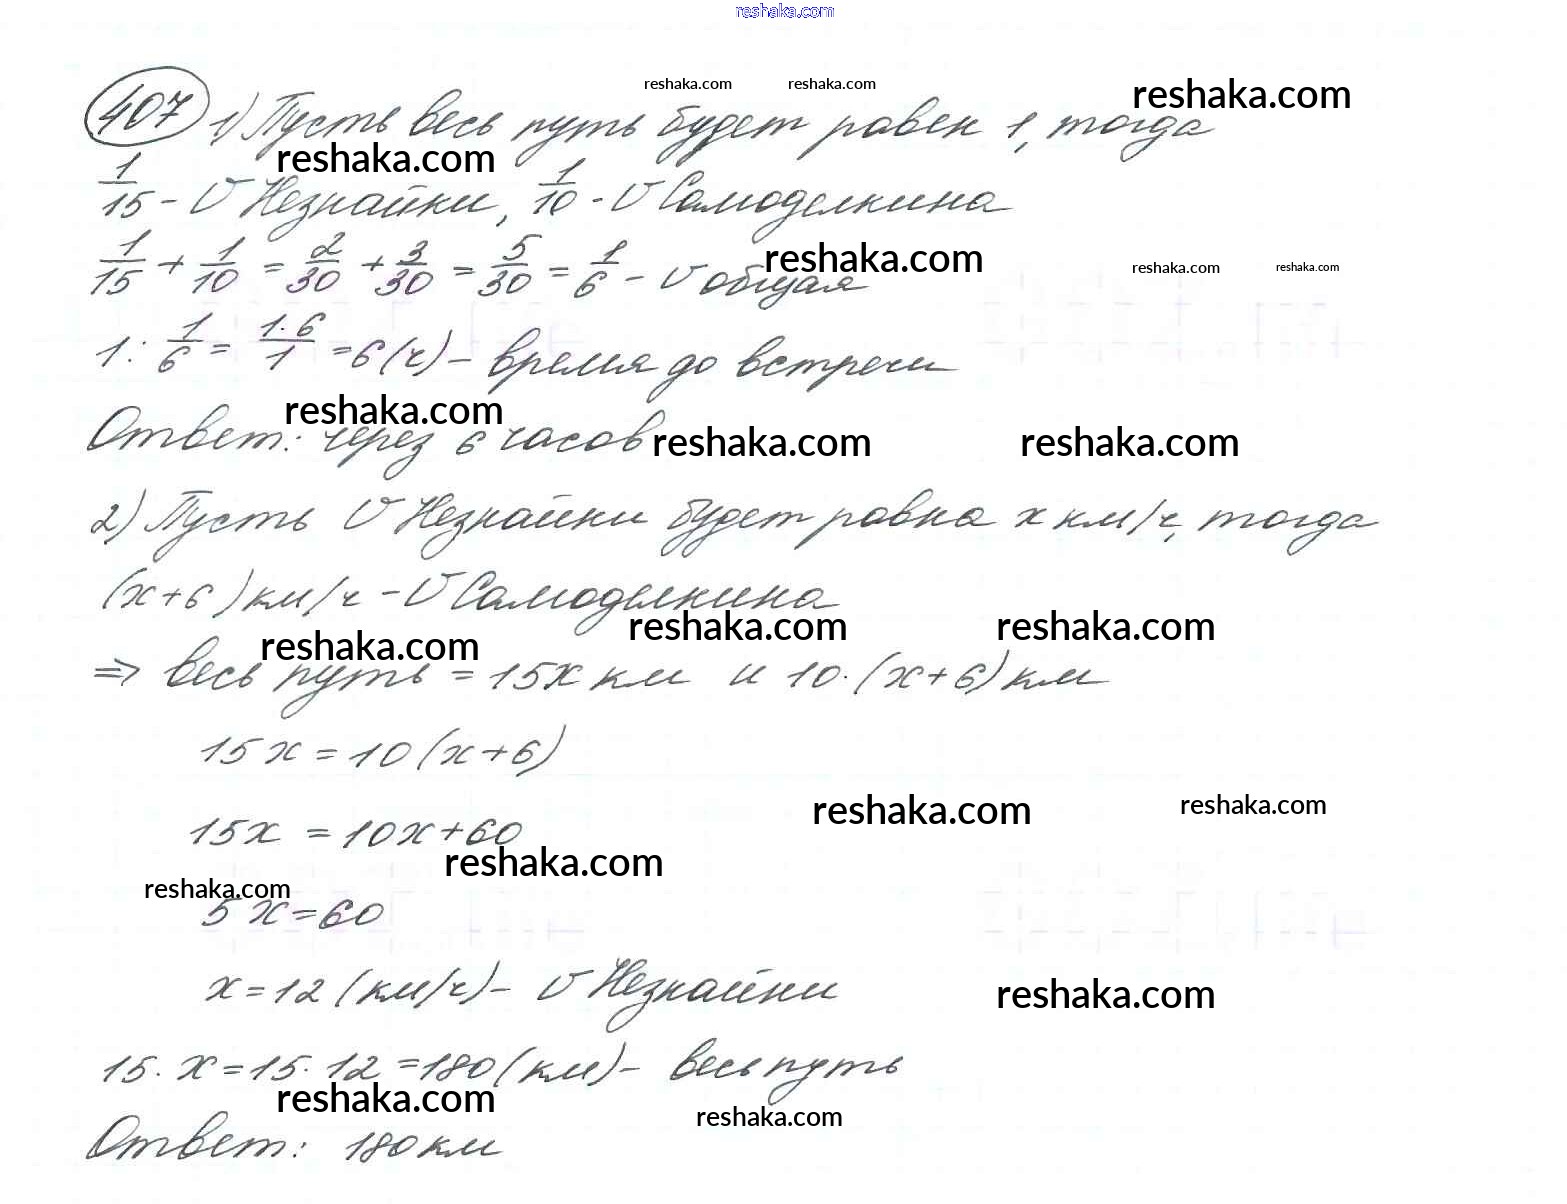 reshaka.com
reshaka.com reshaka.com reshaka.com
407 1) Пусть весь путь будет равен 1, тогда
reshaka.com
1/15 - V Незнайки, 1/10 - V Самоделкина
1/15 + 1/10 = 2/30 + 3/30 = 5/30 = 1/6 - V общая
reshaka.com reshaka.com reshaka.com
1 : 1/6 = 1·6/1 = 6 (ч) - время до встречи
reshaka.com
Ответ: через 6 часов
reshaka.com reshaka.com
2) Пусть V Незнайки будет равна x км/ч, тогда
(x+6) км/ч - V Самоделкина
reshaka.com reshaka.com reshaka.com
=> весь путь = 15x км и 10·(x+6) км
15x = 10(x+6)
reshaka.com reshaka.com
15x = 10x+60
reshaka.com
reshaka.com
5x=60
x=12 (км/ч) - V Незнайки
reshaka.com
15·x=15·12=180 (км) - весь путь
reshaka.com reshaka.com
Ответ: 180 км